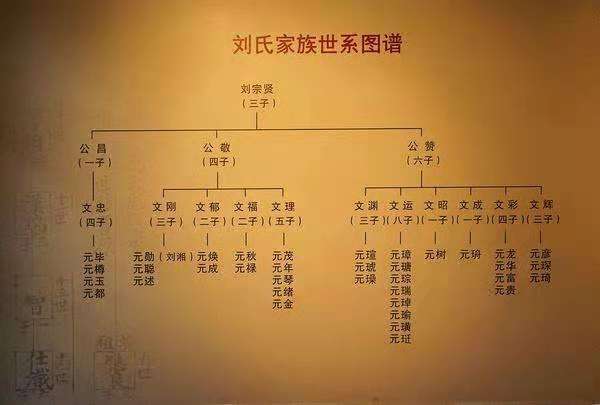 刘氏家族世系图谱
刘宗贤
（三子）
公昌
（一子）
公敬
（四子）
公赞
（六子）
文忠
（四子）
文刚
（三子）
文郁
（二子）
文福
（二子）
文理
（五子）
文渊
（三子）
文运
（八子）
文昭
（一子）
文成
（一子）
文彩
（四子）
文辉
（三子）
元毕
元樽
元玉
元都
元勋（刘湘）
元聪
元述
元焕
元成
元秋
元禄
元茂
元年
元琴
元绪
元金
元瑄
元琥
元璪
元璋
元瑭
元琮
元瑞
元㻛
元瑜
元璜
元珏
元树
元
元龙
元华
元富
元贵
元彦
元琛
元琦